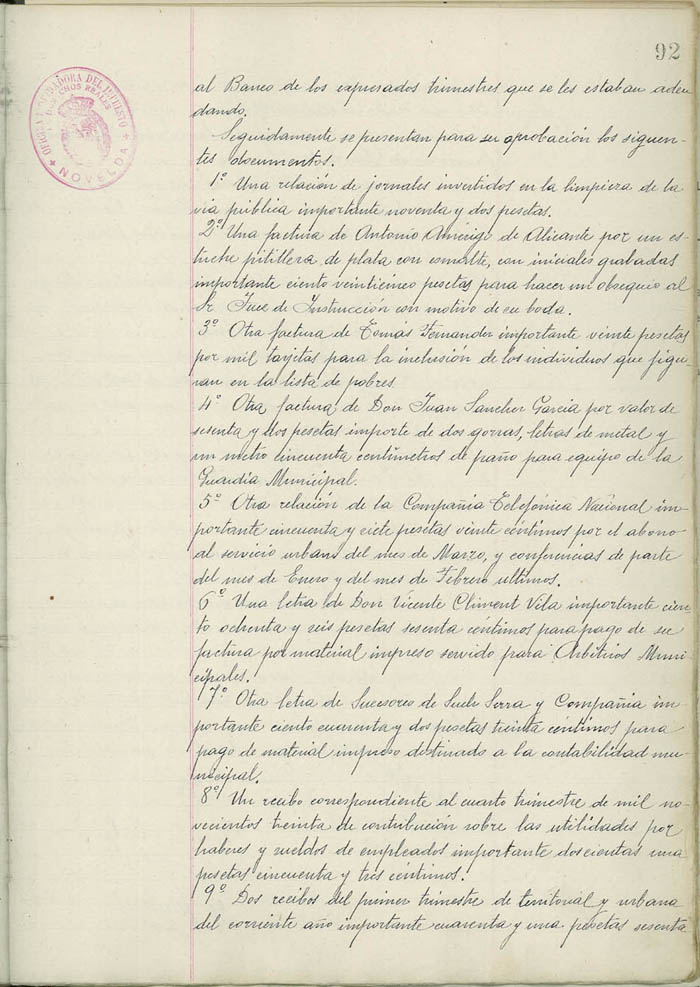 92
OFICINA LIQUIDADORA DEL IMPUESTO
DERECHOS REALES
NOVELDA
al Banco de los expresados trimestres que se les estaban aden
dando.
Seguidamente se presentan para su aprobación los siguen-
tes documentos.
1º Una relación de jornales invertidos en la limpieza de la
via pública importante noventa y dos pesetas.
2º Una factura de Antonio Amerigo de Alicante por un es-
tuche pitillera de plata con esmalte, con iniciales grabadas
importante ciento veinticinco pesetas para hacer un obsequio al
Sr. Juez de Instrucción con motivo de su boda.
3º Otra factura de Tomás Fernandez importante veinte pesetas
por mil tarjetas para la inclusión de los individuos que figu
ran en la lista de pobres
4º Otra factura de Don Juan Sanchez Garcia por valor de
sesenta y dos pesetas importe de dos gorras, letras de metal y
un metro cincuenta centímetros de paño para equipo de la
Guardia Municipal.
5º Otra relación de la Compañia Telefónica Nacional im-
portante cincuenta y siete pesetas veinte céntimos por el abono
al servicio urbano del mes de Marzo, y conferencias de parte
del mes de Enero y del mes de Febrero ultimos.
6º Una letra de Don Vicente Climent Vila importante cien-
to ochenta y seis pesetas sesenta céntimos para pago de su
factura por material impreso servido para Arbitrios Muni-
cipales.
7º Otra letra de Sucesores de Such Serra y Compañia im-
portante ciento cuarenta y dos pesetas treinta céntimos para
pago de material impreso destinado a la contabilidad mu-
nicipal.
8º Un recibo correspondiente al cuarto trimestre de mil no-
vecientos treinta de contribución sobre las utilidades por
haberes y sueldos de empleados importante doscientas una
pesetas cincuenta y tres céntimos.
9º Dos recibos del primer trimestre de territorial y urbana
del corriente año importante cuarenta y una pesetas sesenta